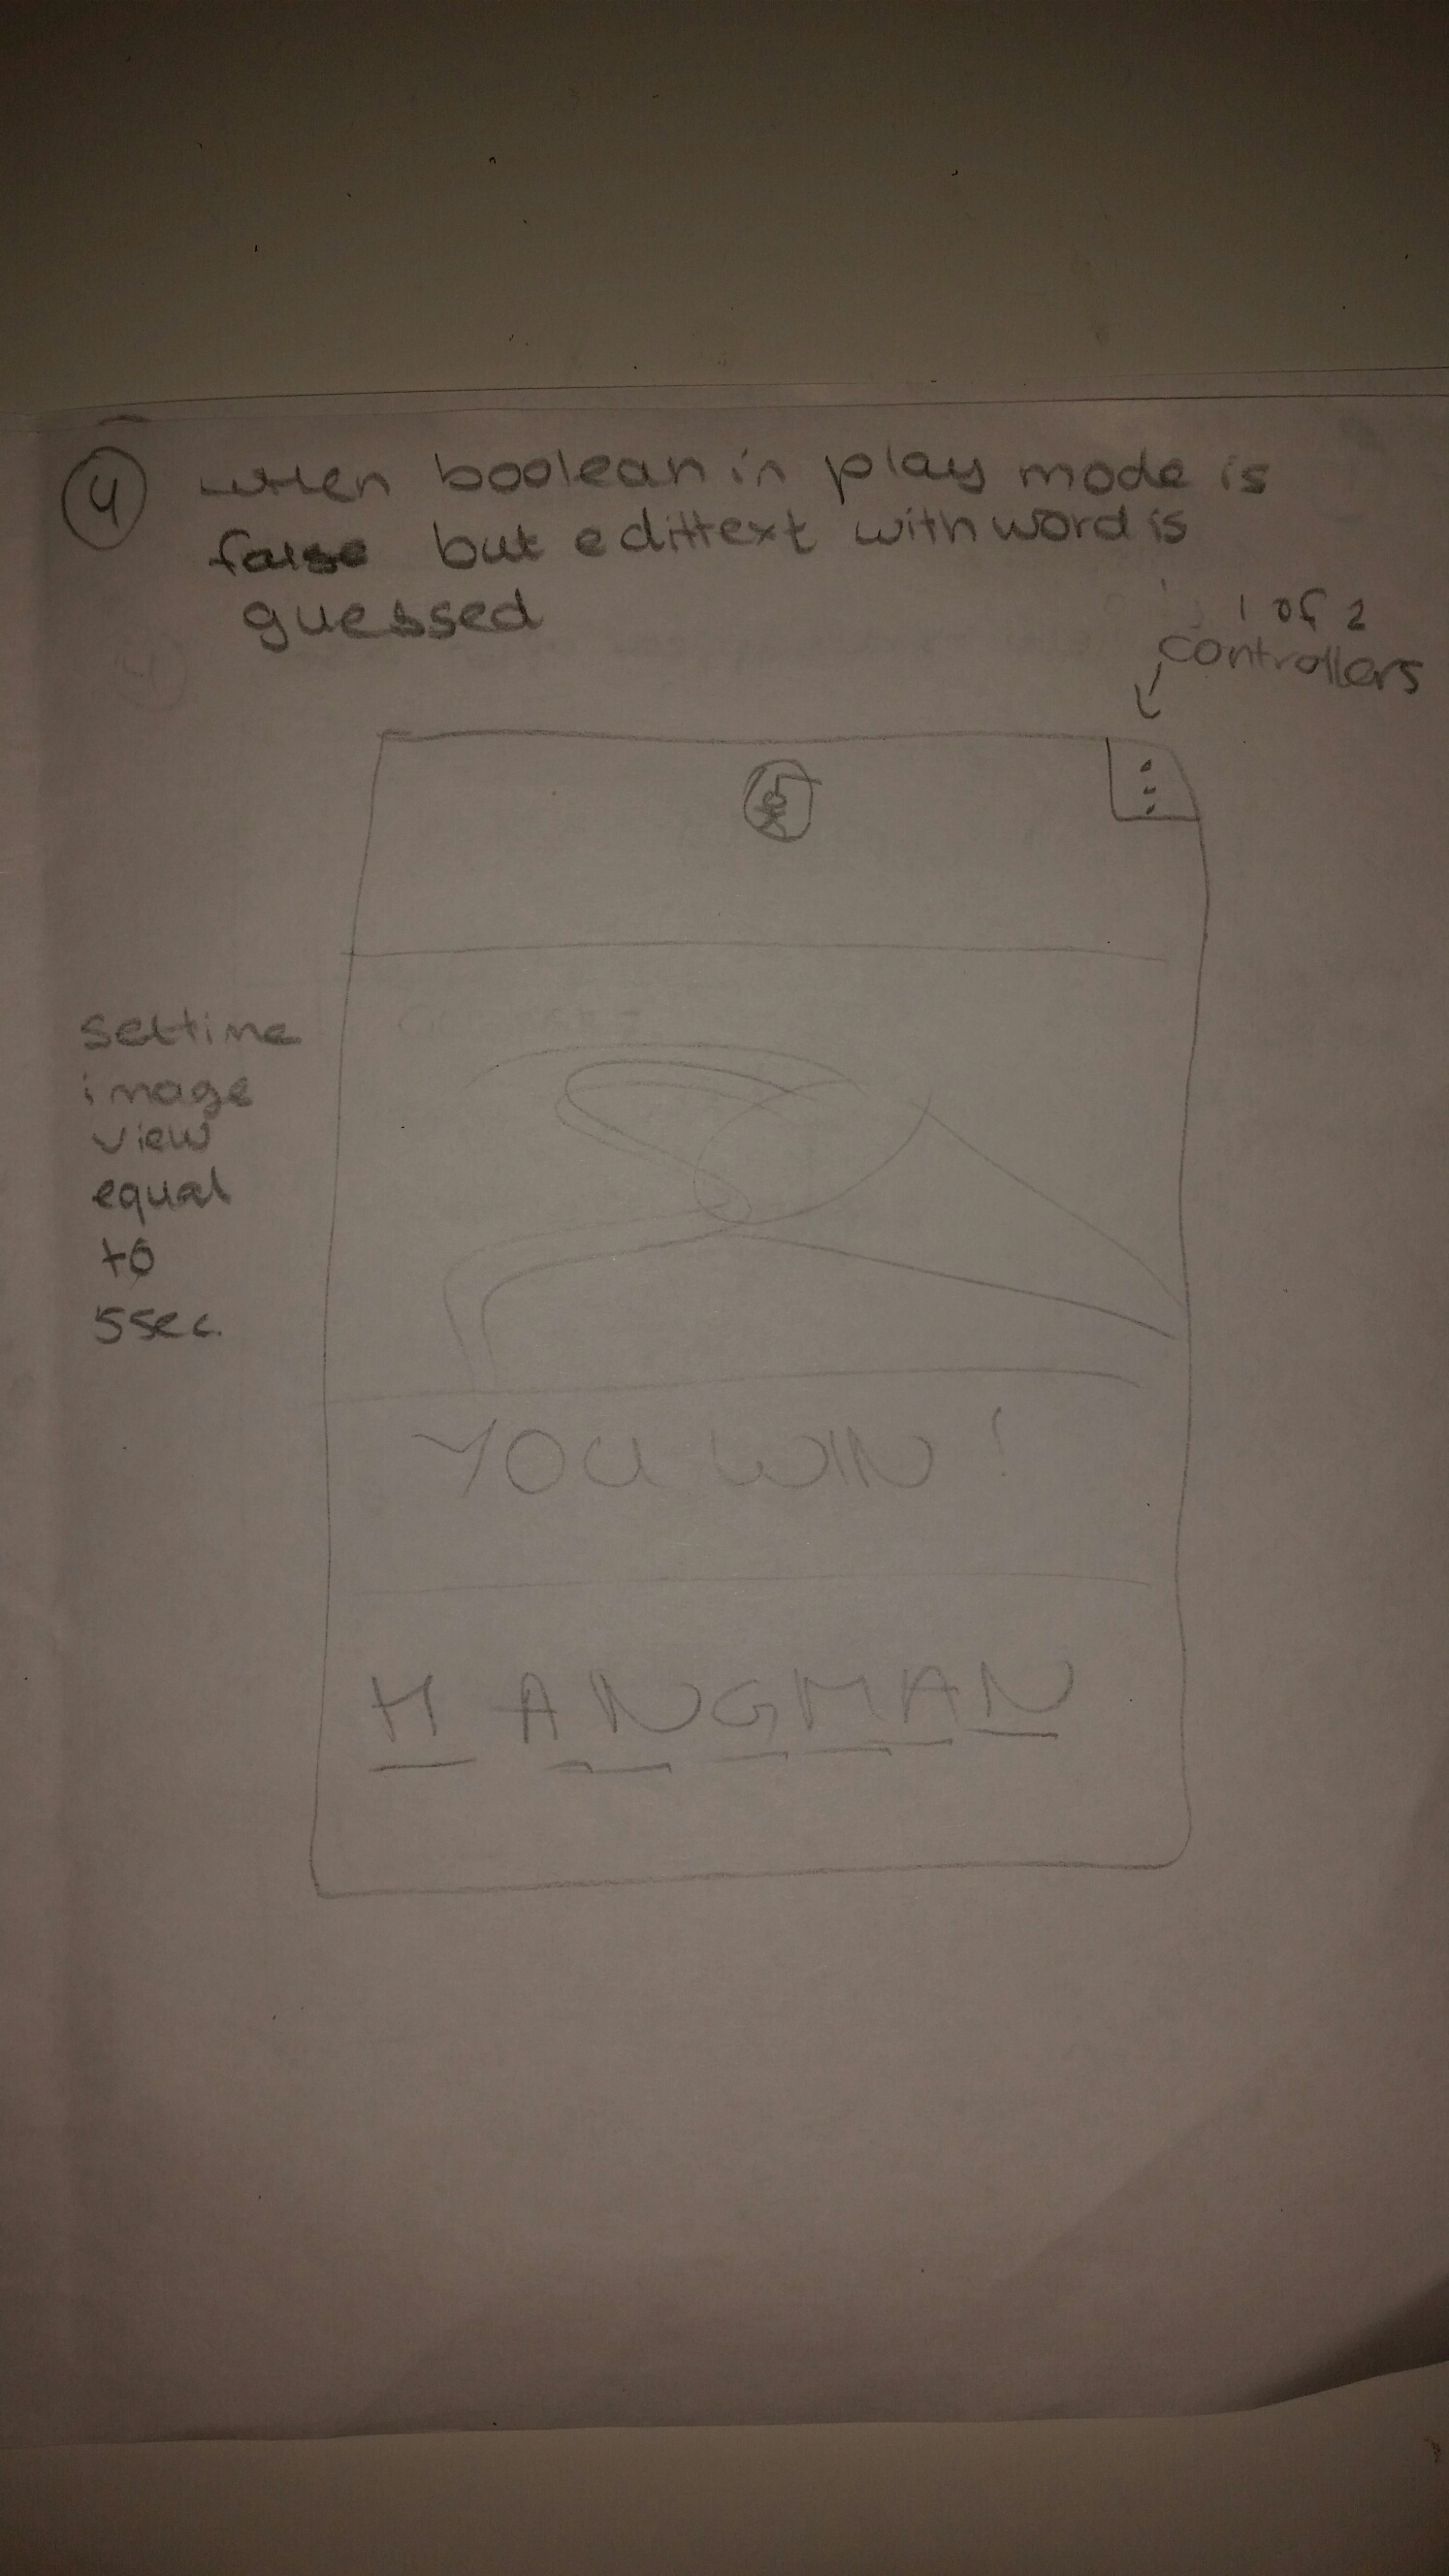 4 when boolean in play mode is
false but edittext with word is
guessed
1 of 2
controllers
settime
image
view
equal
to
5sec.
YOU WIN!
HANGMAN